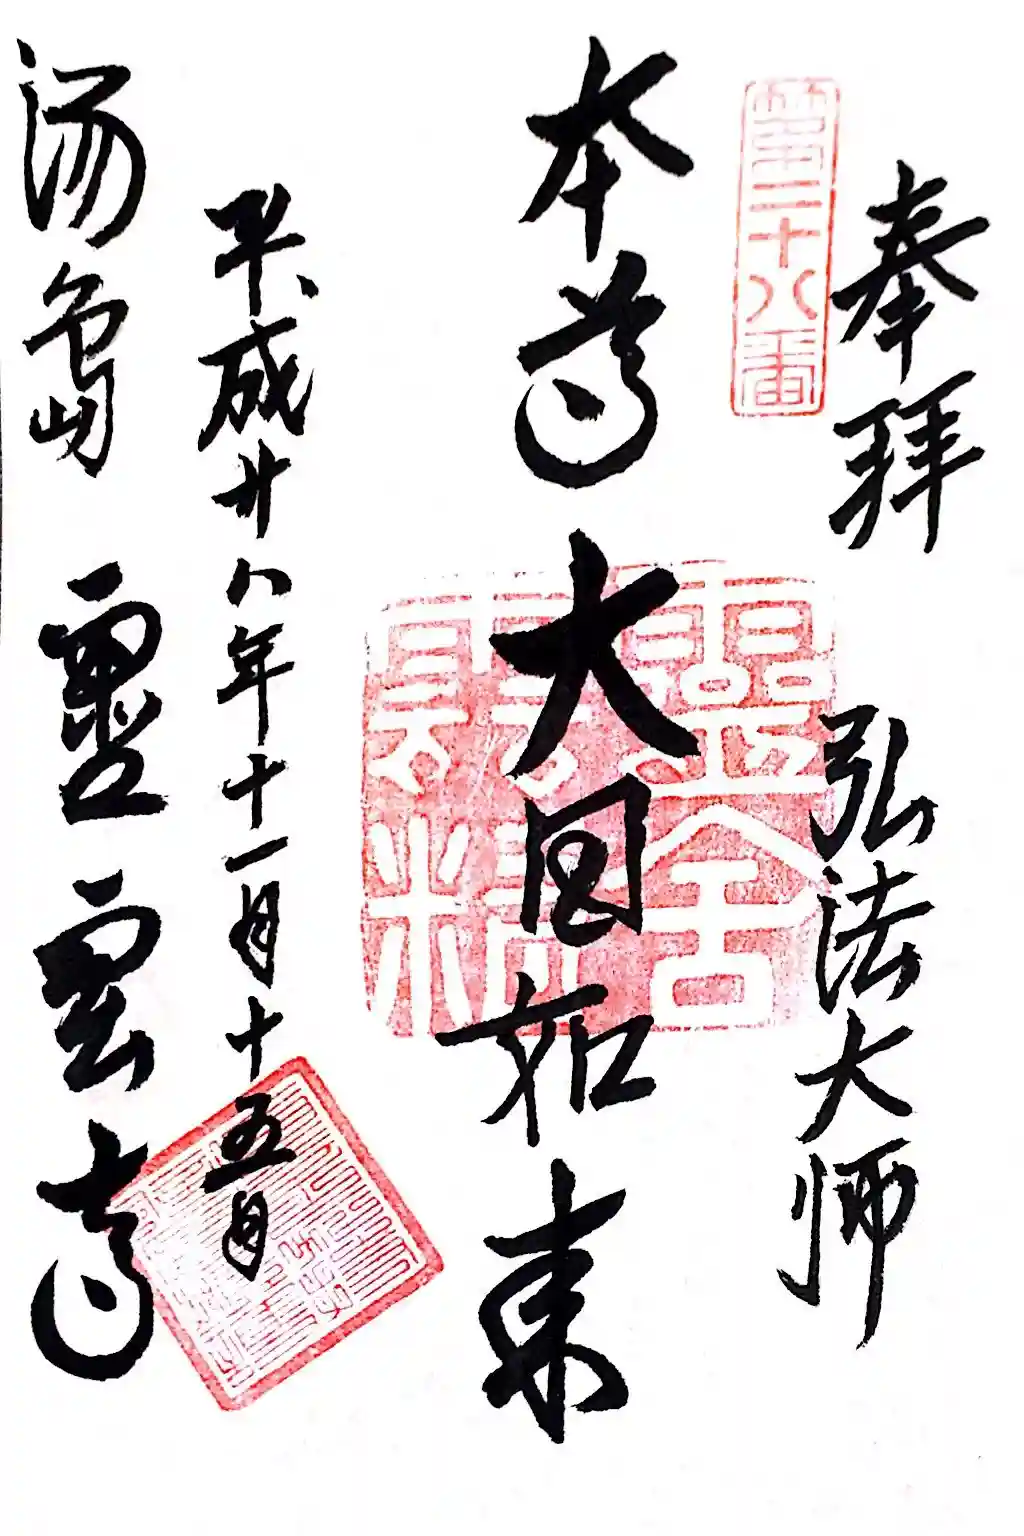 奉拝
弘法大師
第二十八番
本尊大日如来
平成廿八年十一月十五日
湯島
霊雲寺